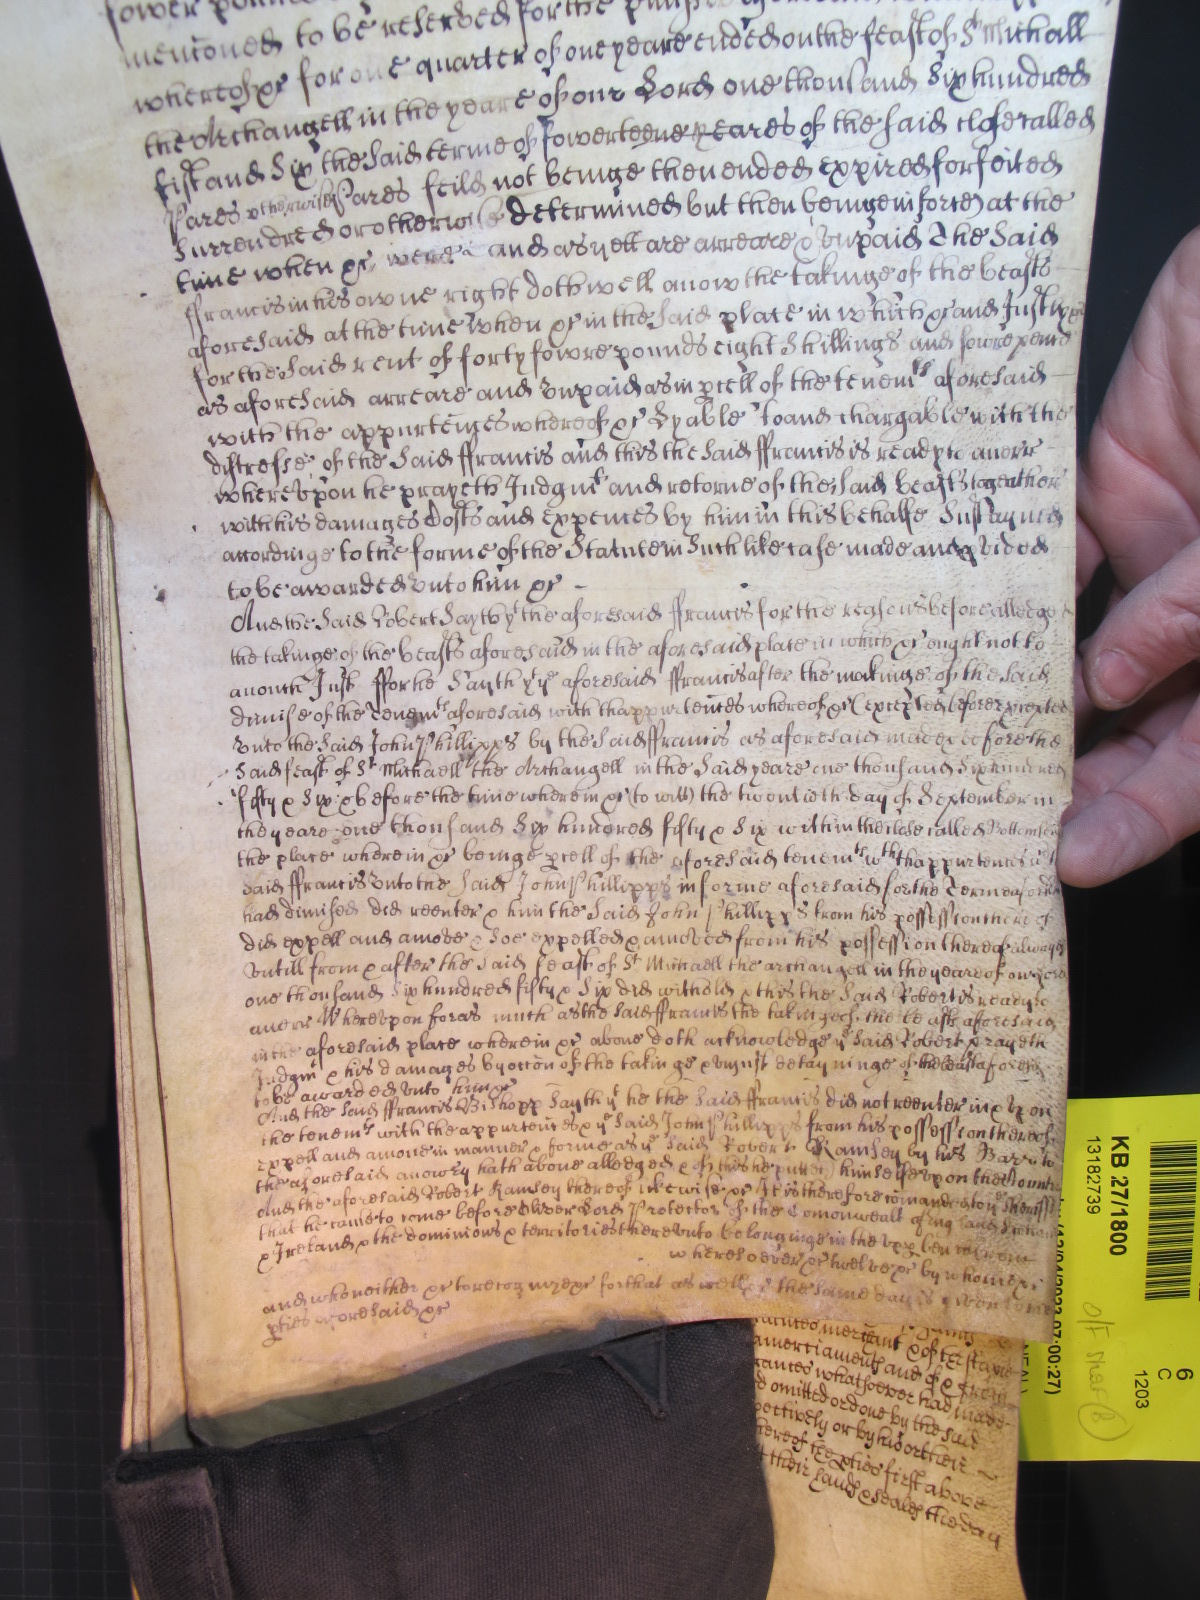 fower pounds
menconed to be reserved for the
whereof &c for one quarter of one yeare ended on the feast of St Michaell
the Archangell in the yeare of our Lord one thousand Six hundred
fift and Six the said terme of fowerteene yeares of the said close called
Pares otherwise Pares feild not beinge then ended expired forfeited
Surrendred or otherwise determined but then beinge in force) at the
time when &c were and as yett are arreare & unpaid The said
ffrancis in his owne right doth well avow the takinge of the beasts
aforesaid at the time when &c in the said place in which &c and Justly &c
for the said rent of forty fowre pounds eight Shillings and fowre pence
as aforesaid arreare and unpaid as in pcell of the tenemts aforesaid
with the appurtences whereof &c Lyable to and chargable with the
distresse of the said ffrancis and this the said ffrancis is ready to averr
whereupon he prayeth Judgmt and retorne of the said beasts togeather
with his damages Costs and expences by him in this behalfe Sustayned
accordinge to the forme of the Statute in Such like case made and pvided
to be awarded unto him &c
And the said Robert Sayth yt the aforesaid ffrancis for the reasons before alledged
the takinge of the beasts aforesaid in the aforesaid place in which &c ought not to
avouch Just ffor he Sayth yt ye aforesaid ffrancis after the makinge of the said
dimise of the tenemts aforesaid with thappurtences whereof &c (except before excepted
unto the said John Phillipps by the said ffrancis as aforesaid made & before the
said feast of St Michaell the Archangell in the said yeare one thousand Six hundred
fifty & Six & before the time wherein &c (to witt) the twentieth day of September in
the yeare one thousand Six hundred fifty & Six within the close called
the place wherein &c beinge pcell of the aforesaid tenemts wth thappurtences
said ffrancis unto the said John Phillipps in forme aforesaid for the Terme aforesaid
had dimised did reenter & him the said John Phillipps from his possession thereof
did expell and amove & soe expelled & amoved from his possession thereof alwayes
untill from & after the said feast of St Michaell the archangell in the yeare of our Lord
one thousand Six hundred fifty & Six did withold & this the said Robert is ready to
averr Whereupon foras much as the said ffrancis the takinge of the beasts aforesaid
in the aforesaid place wherein &c above doth acknowledge ye said Robert prayeth
Judgmt & his damages by occon of the takinge & unjust detayninge of the beasts aforesaid
to be awarded unto him &c
And the said ffrancis Bishopp Sayth yt he the said ffrancis did not reenter in & upon
the tenemts with the appurtences & ye said John Phillipps from his possession thereof
expell and amove in manner & forme as ye said Robert Ramsey by his Barr to
the aforesaid avowry hath above alledged & of this he putteth himselfe upon the Country
And the aforesaid Robert Ramsey thereof likewise &c It is therefore comanded to ye Sheriffe
that he cause to come before Oliver Lord Protector of the Comonwealth of England Scotland
& Ireland & the dominions & territories thereunto belonginge in the upper bench
wheresoever &c twelve &c by whom &c
and who neither &c to recognize &c for that as well & the same day is given to the
pties aforesaid &c
amerciaments and of &
whatsoever had made
omitted or done by the said
pectively or by his or their
hereof the pties first above
their hands & seales the day
KB 27/1800
13182739
O/F Shelf (B)
6
C
1203
07:00:27)